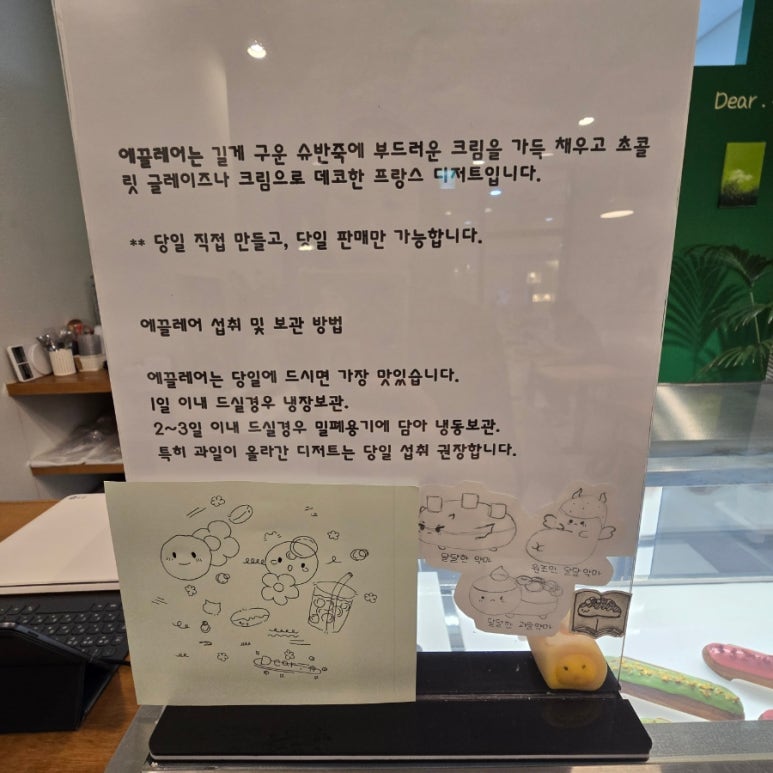 Dear.
에끌레어는 길게 구운 슈반죽에 부드러운 크림을 가득 채우고 초콜
릿 글레이즈나 크림으로 데코한 프랑스 디저트입니다.
** 당일 직접 만들고, 당일 판매만 가능합니다.
에끌레어 섭취 및 보관 방법
에끌레어는 당일에 드시면 가장 맛있습니다.
1일 이내 드실경우 냉장보관.
2~3일 이내 드실경우 밀폐용기에 담아 냉동보관.
특히 과일이 올라간 디저트는 당일 섭취 권장합니다.
달달한 악마
원조인 달달악마
달달한 괴물악마
Dear